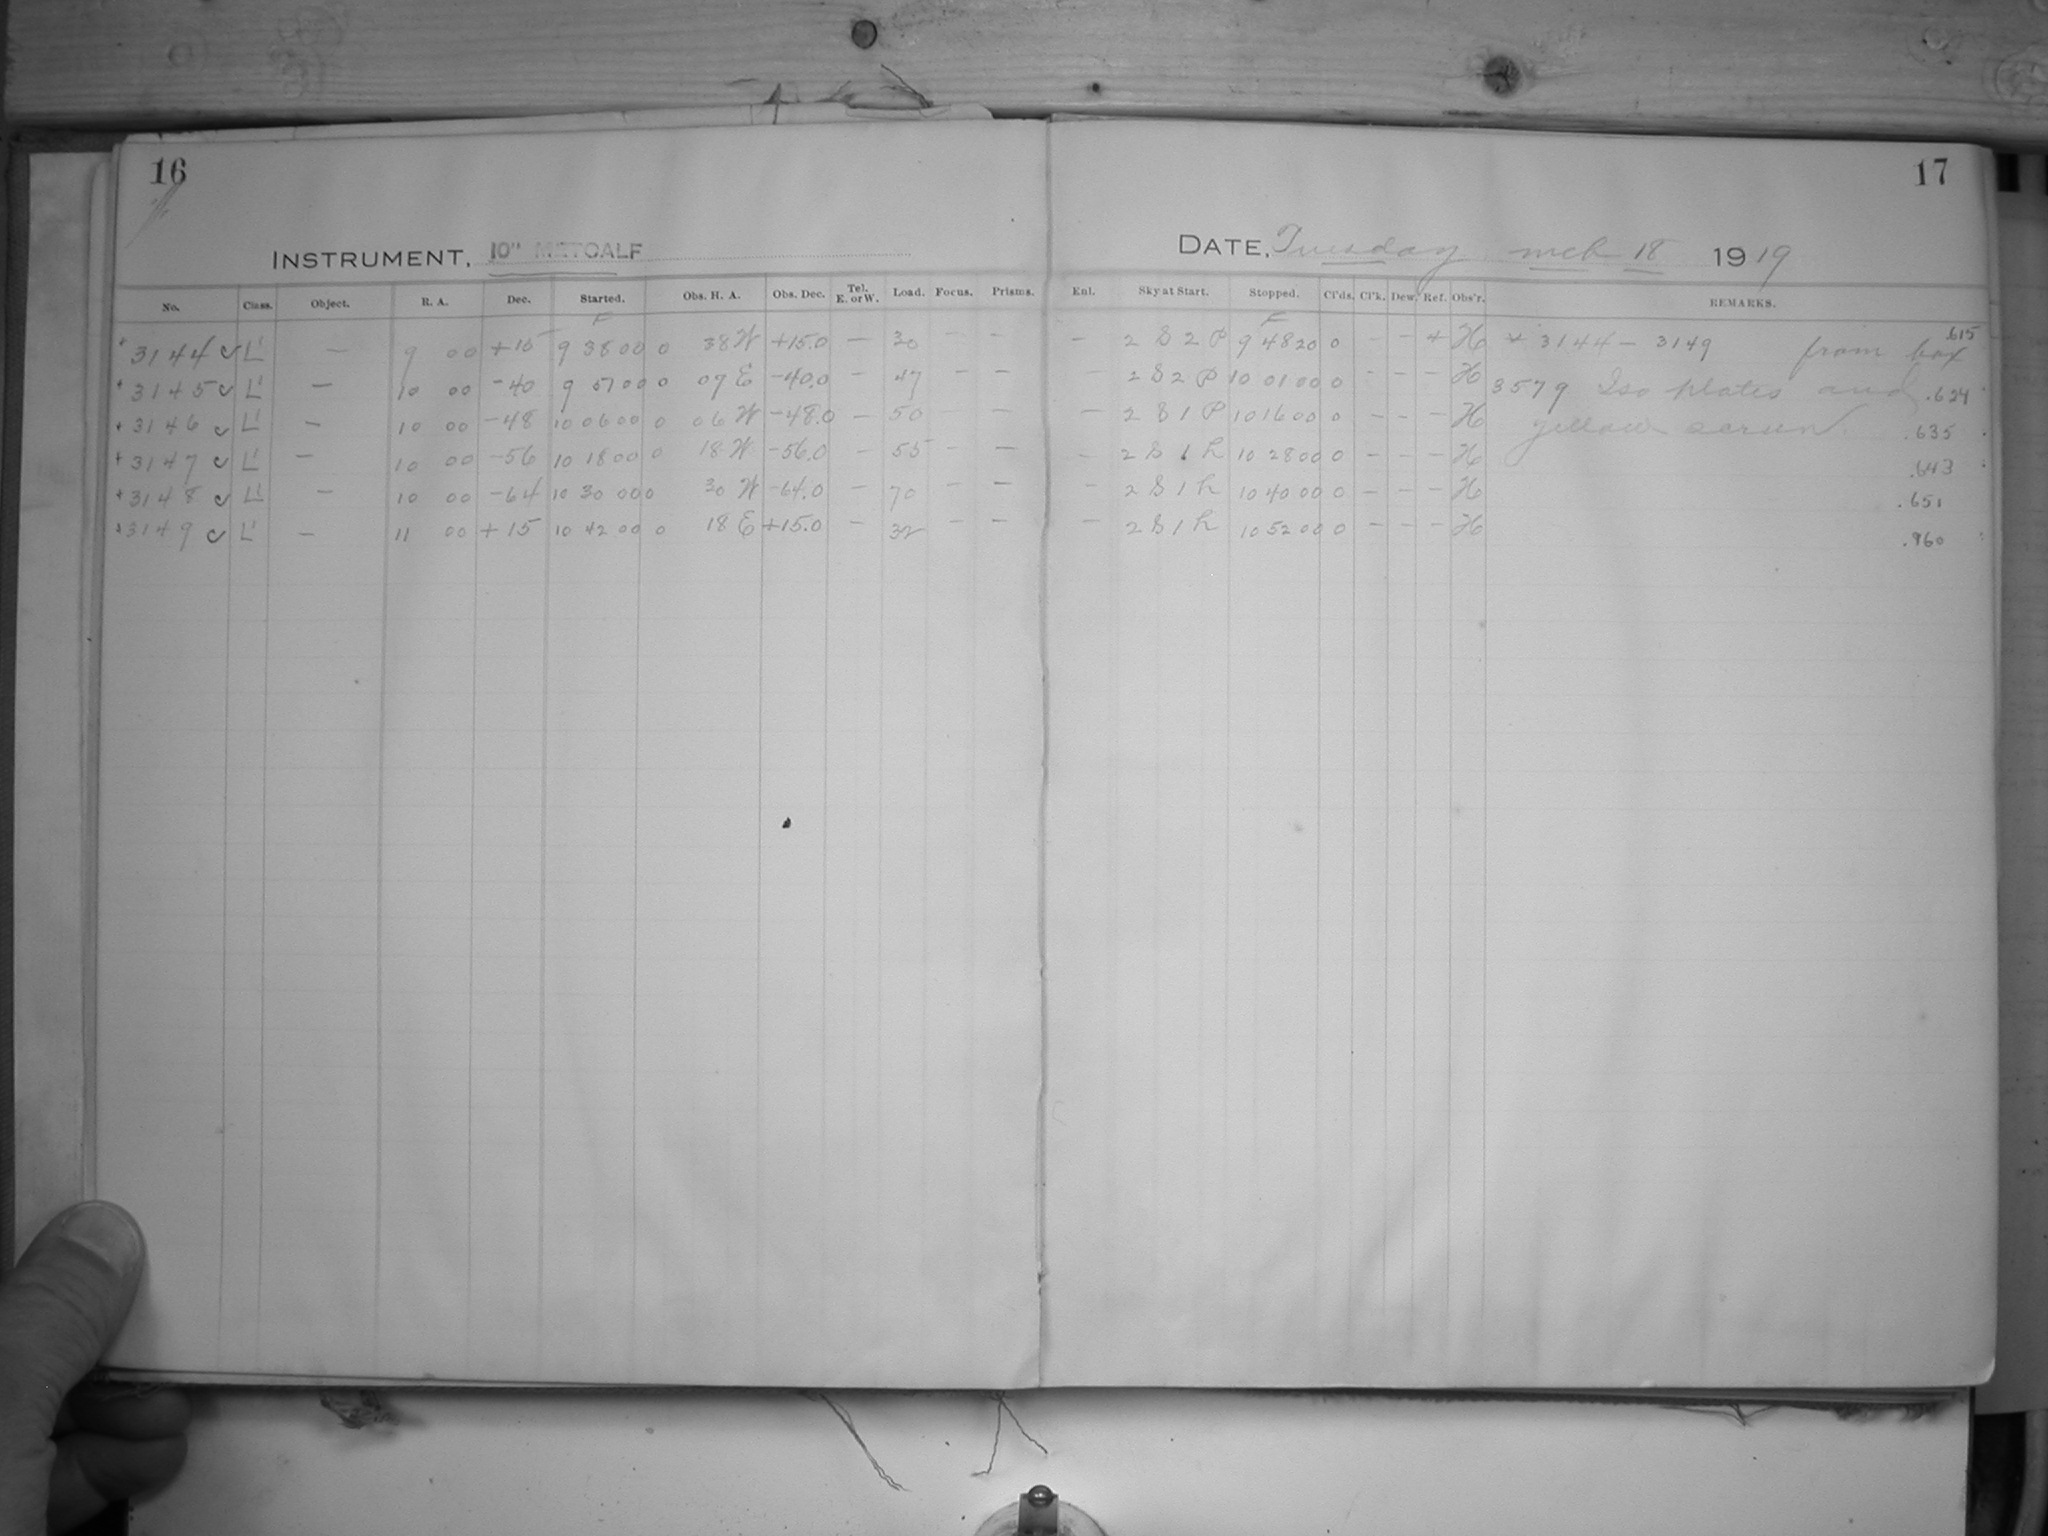 16
17
INSTRUMENT, 10" METCALF
DATE, Tuesday mch 18 1919
No. Class. Object. R. A. Dec. Started. Obs. H. A. Obs. Dec. Tel. E. or W. Load. Focus. Prisms. Enl. Sky at Start. Stopped. Cl'ds. Cl'k. Dew. Ref. Obs'r. REMARKS.
F F
* 3144 ✓ L' — 9 00 +15 9 38 00 0 38 W +15.0 — 30 — — — 2 S 2 P 9 48 20 0 - - + H * 3144 — 3149 from box .615
* 3145 ✓ L' — 10 00 -40 9 51 00 0 07 E -40.0 — 47 — — — 2 S 2 P 10 01 00 0 - - - H 3579 Iso plates and .624
* 3146 ✓ L' — 10 00 -48 10 06 00 0 06 W -48.0 — 50 — — 2 S 1 P 10 16 00 0 - - - H yellow screen .635
* 3147 ✓ L' — 10 00 -56 10 18 00 0 18 W -56.0 — 55 - — — 2 S 1 h 10 28 00 0 - - - H .643
* 3148 ✓ L' — 10 00 -64 10 30 00 0 30 W -64.0 — 70 - — — 2 S 1 h 10 40 00 0 - - - H .651
* 3149 ✓ L' — 11 00 +15 10 42 00 0 18 E +15.0 — 32 — — — 2 S 1 h 10 52 00 0 - - - H .960